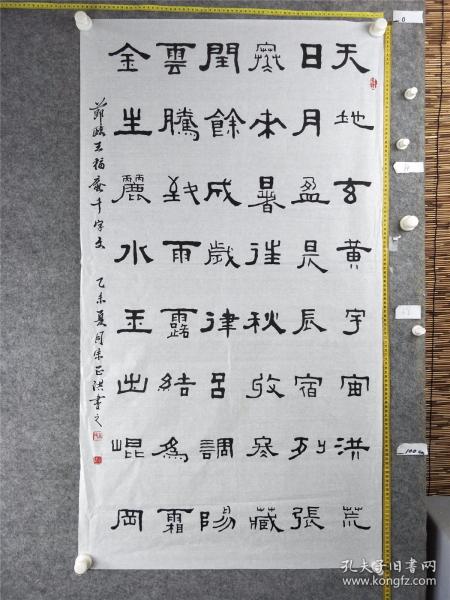 天地玄黃宇宙洪荒
日月盈昃辰宿列張
寒來暑往秋收冬藏
閏餘成歲律呂調陽
雲騰致雨露結為霜
金生麗水玉出崐岡
節臨王福庵千字文 乙未夏月宋正洪書之
0
100cm
孔夫子旧书网
www.kongfz.com